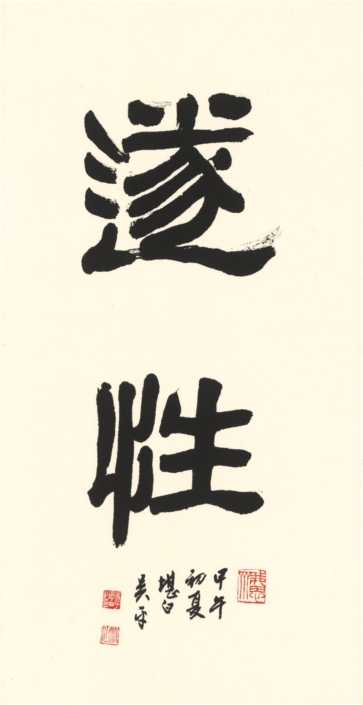 遂
性
甲午
初夏
堪白
吳平